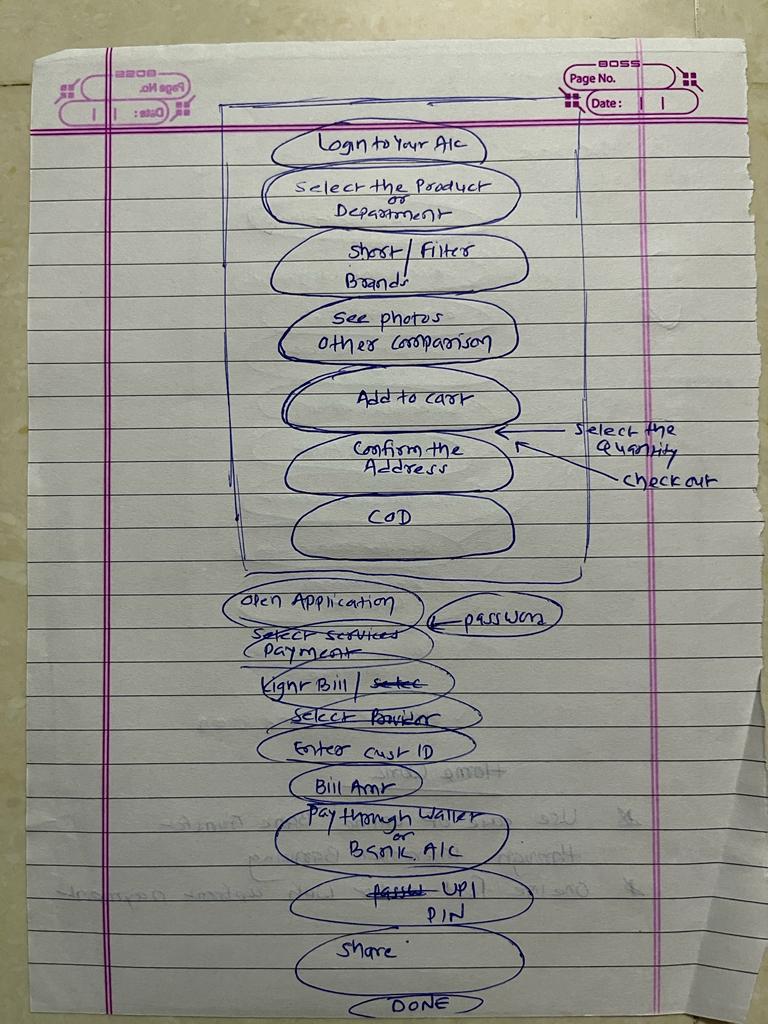 BOSS
Page No.
Date :
Login to Your A/c
Select the Product
or
Department
Short / Filter
Brands
See photos
Other Comparison
Add to cart
Select the
Quantity
Check out
Confirm the
Address
COD
Open Application
password
Select services
Payment
Light Bill / Selec
Select Provider
Enter Cust ID
Bill Amt
Pay through Wallet
or
Bank A/c
UPI
PIN
Share
DONE